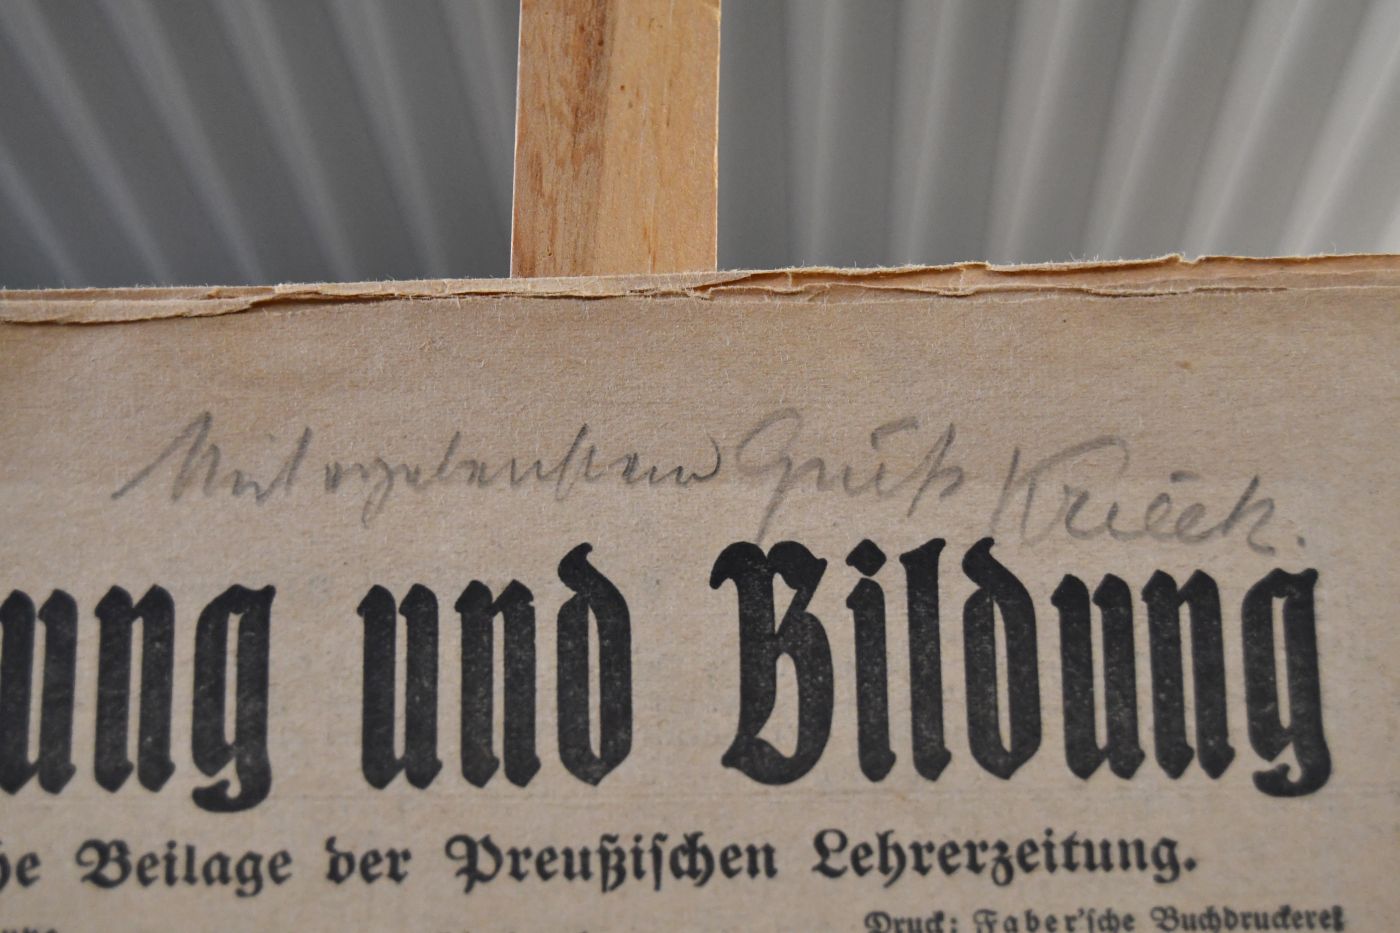 Mit ergebenstem Gruß Krieck.
ung und Bildung
he Beilage der Preußischen Lehrerzeitung.
Druck: Faber'sche Buchdruckerei